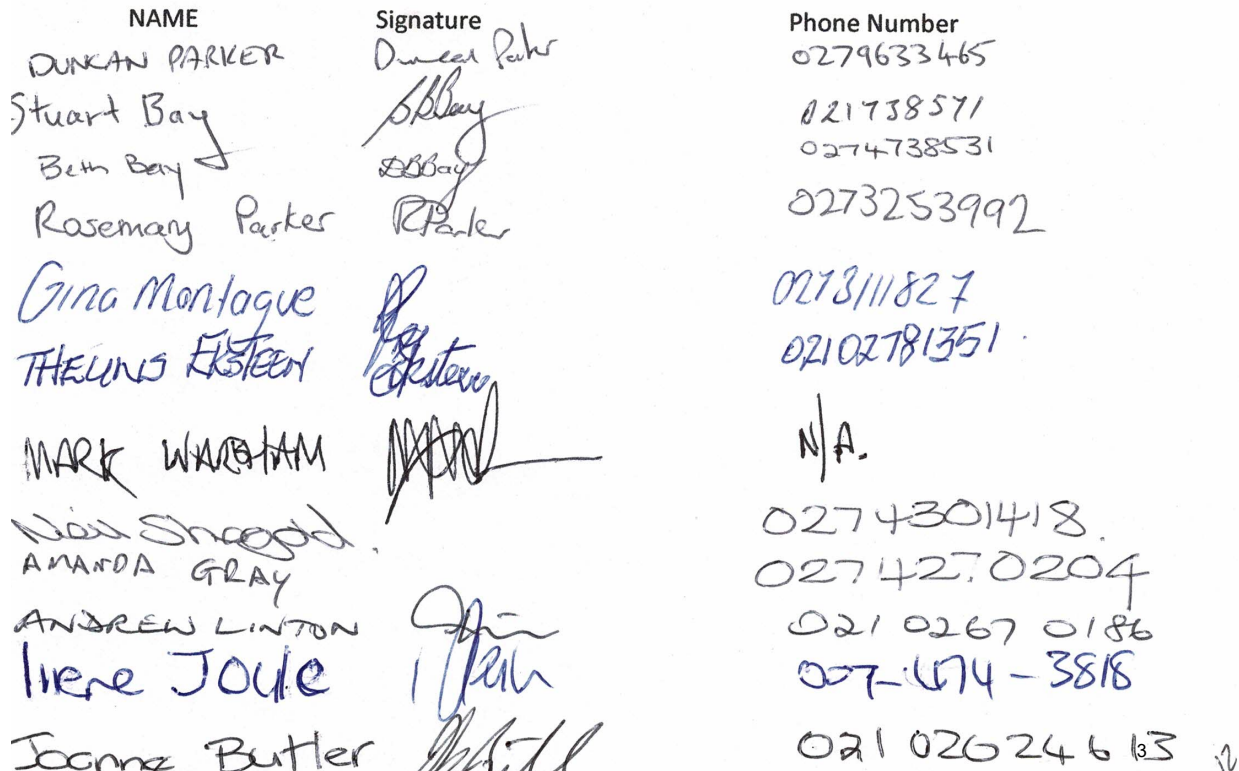 NAME Signature Phone Number
DUNCAN PARKER Duncan Parker 0279633465
Stuart Bay SBBay 021738571
Beth Bay BBay 0274738531
Rosemary Parker RParker 0273253992
Gina Montague 0273111827
THEUNS EKSTEEN Eksteen 02102781351
MARK WAREHAM N/A.
0274301418
AMANDA GRAY 0274270204
ANDREW LINTON 021 0267 0186
Irene JOyle 3818
Joanne Butler 021 02024613